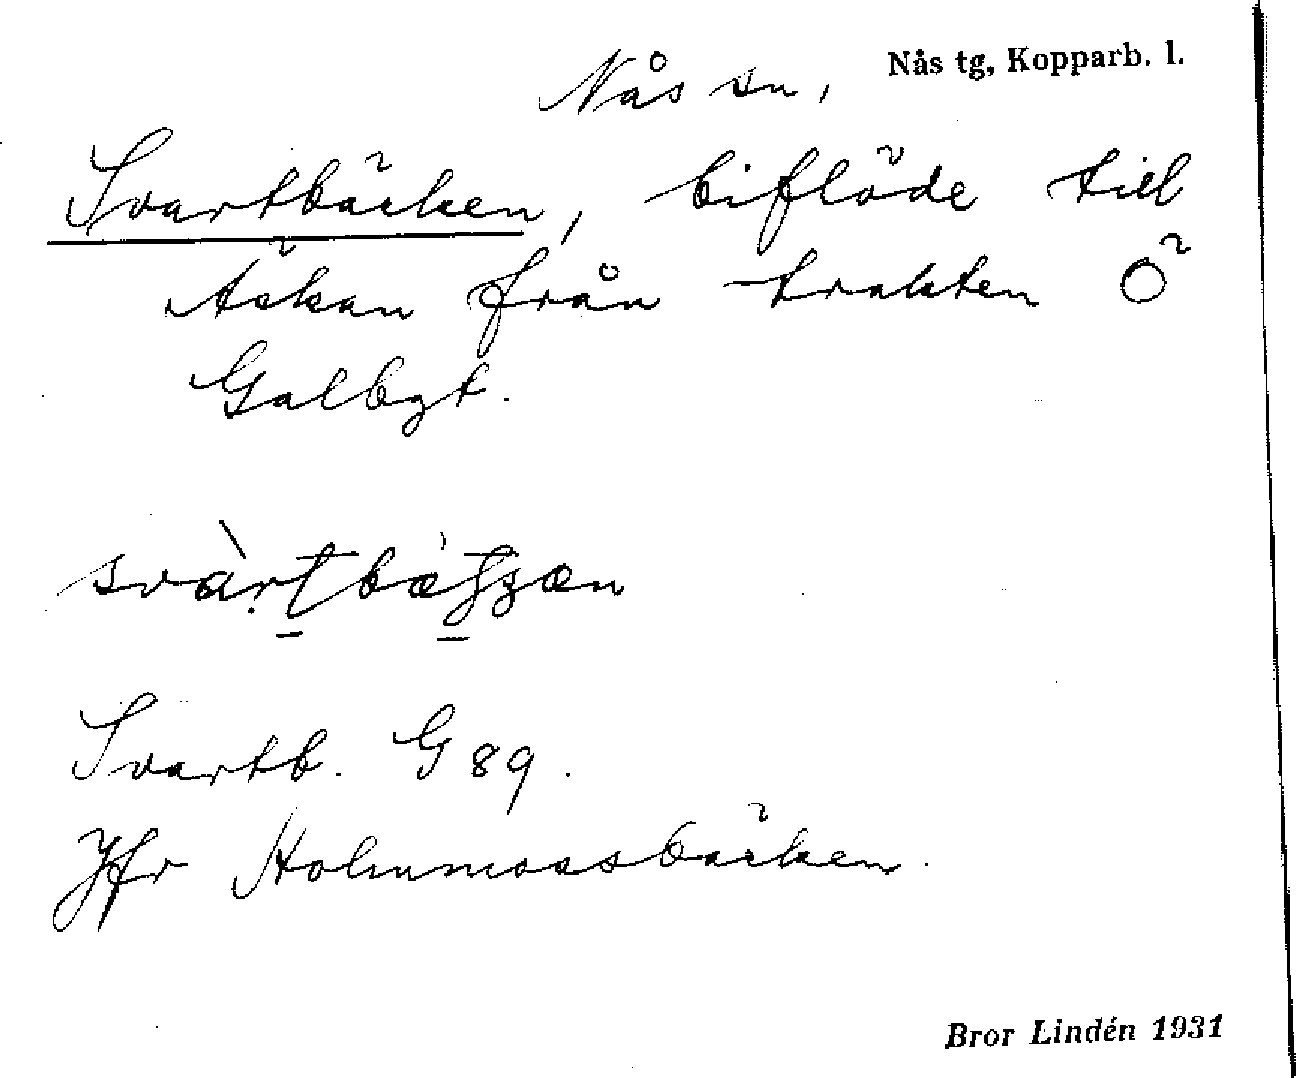 Nås tg, Kopparb. l.
Nås sn,
Svartbäcken, biflöde till
Äskan från trakten Ö
Galbgt.
Svartb. G 89.
Jfr Holmmossbäcken.
Bror Lindén 1931